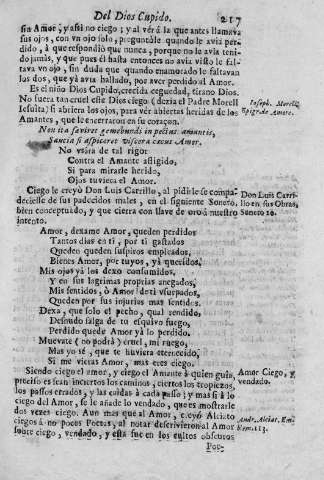 Del Dios Cupido. 217
sin Amor, y assi no ciego; y al verà la que antes llamava
sus ojos, con vn ojo solo, preguntòle quando le avia per-
dido, à que respondiò que nunca, porque no le avia teni-
do jamàs, y que pues èl hasta entonces no avia visto le fal-
tava vn ojo, sin duda que quando enamorado le faltavan
los dos, que yà avia hallado, por aver perdido al Amor.
Es el niño Dios Cupido, crecida ceguedad, tirano Dios.
No fuera tan cruel este Dios ciego (dezia el Padre Morell
Iesuita) si abriera los ojos, para ver abiertas heridas de los
Amantes, que le encerraron en su coraçon.
Ioseph. Morell,
Epigr. de Amore.
Non ita sæviret gemebundi in pectus amantis,
Saucia si aspiceret viscera cæcus Amor.
No vsára de tal rigor
Contra el Amante afligido,
Si para mirarle herido,
Ojos tuviera el Amor.
Ciego le creyò Don Luis Carrillo, al pidirle se compa-
deciesse de sus padecidos males, en el siguiente Soneto,
bien conceptuado, y que cierra con llave de oro à nuestro
intento.
Don Luis Carri-
llo en sus Obras,
Soneto 10.
Amor, dexame Amor, queden perdidos
Tantos dias en ti, por ti gastados
Queden queden suspiros empleados,
Bienes Amor, por tuyos, yà queridos.
Mis ojos yà los dexo consumidos,
Y en sus lagrimas proprias anegados,
Mis sentidos, ò Amor! de ti vsurpados,
Queden por sus injurias mas sentidos.
Dexa, que solo el pecho, qual sendido,
Desnudo salga de tu esquivo fuego,
Perdido quede Amor yà lo perdido.
Muevate (no podrà) cruel, mi ruego,
Mas yo sè, que te huviera enternecido,
Si me vieras Amor, mas eres ciego.
Siendo ciego el amor, y ciego el Amante à quien guia,
preciso es sean inciertos los caminos, ciertos los tropiezos,
los passos errados, y las caidas à cada passo; y mas si à lo
ciego del Amor, se le añade lo vendado, que es mostrarle
dos vezes ciego. Aun mas que al Amor, creyò Alciato
ciegos à no pocos Poetas, al notar descrivieron al Amor
sobre ciego, vendado, y està fue en los cultos obscuros
Amor Ciego, y
vendado.
Andr. Alciat. Em-
blem. 113.
Poe-